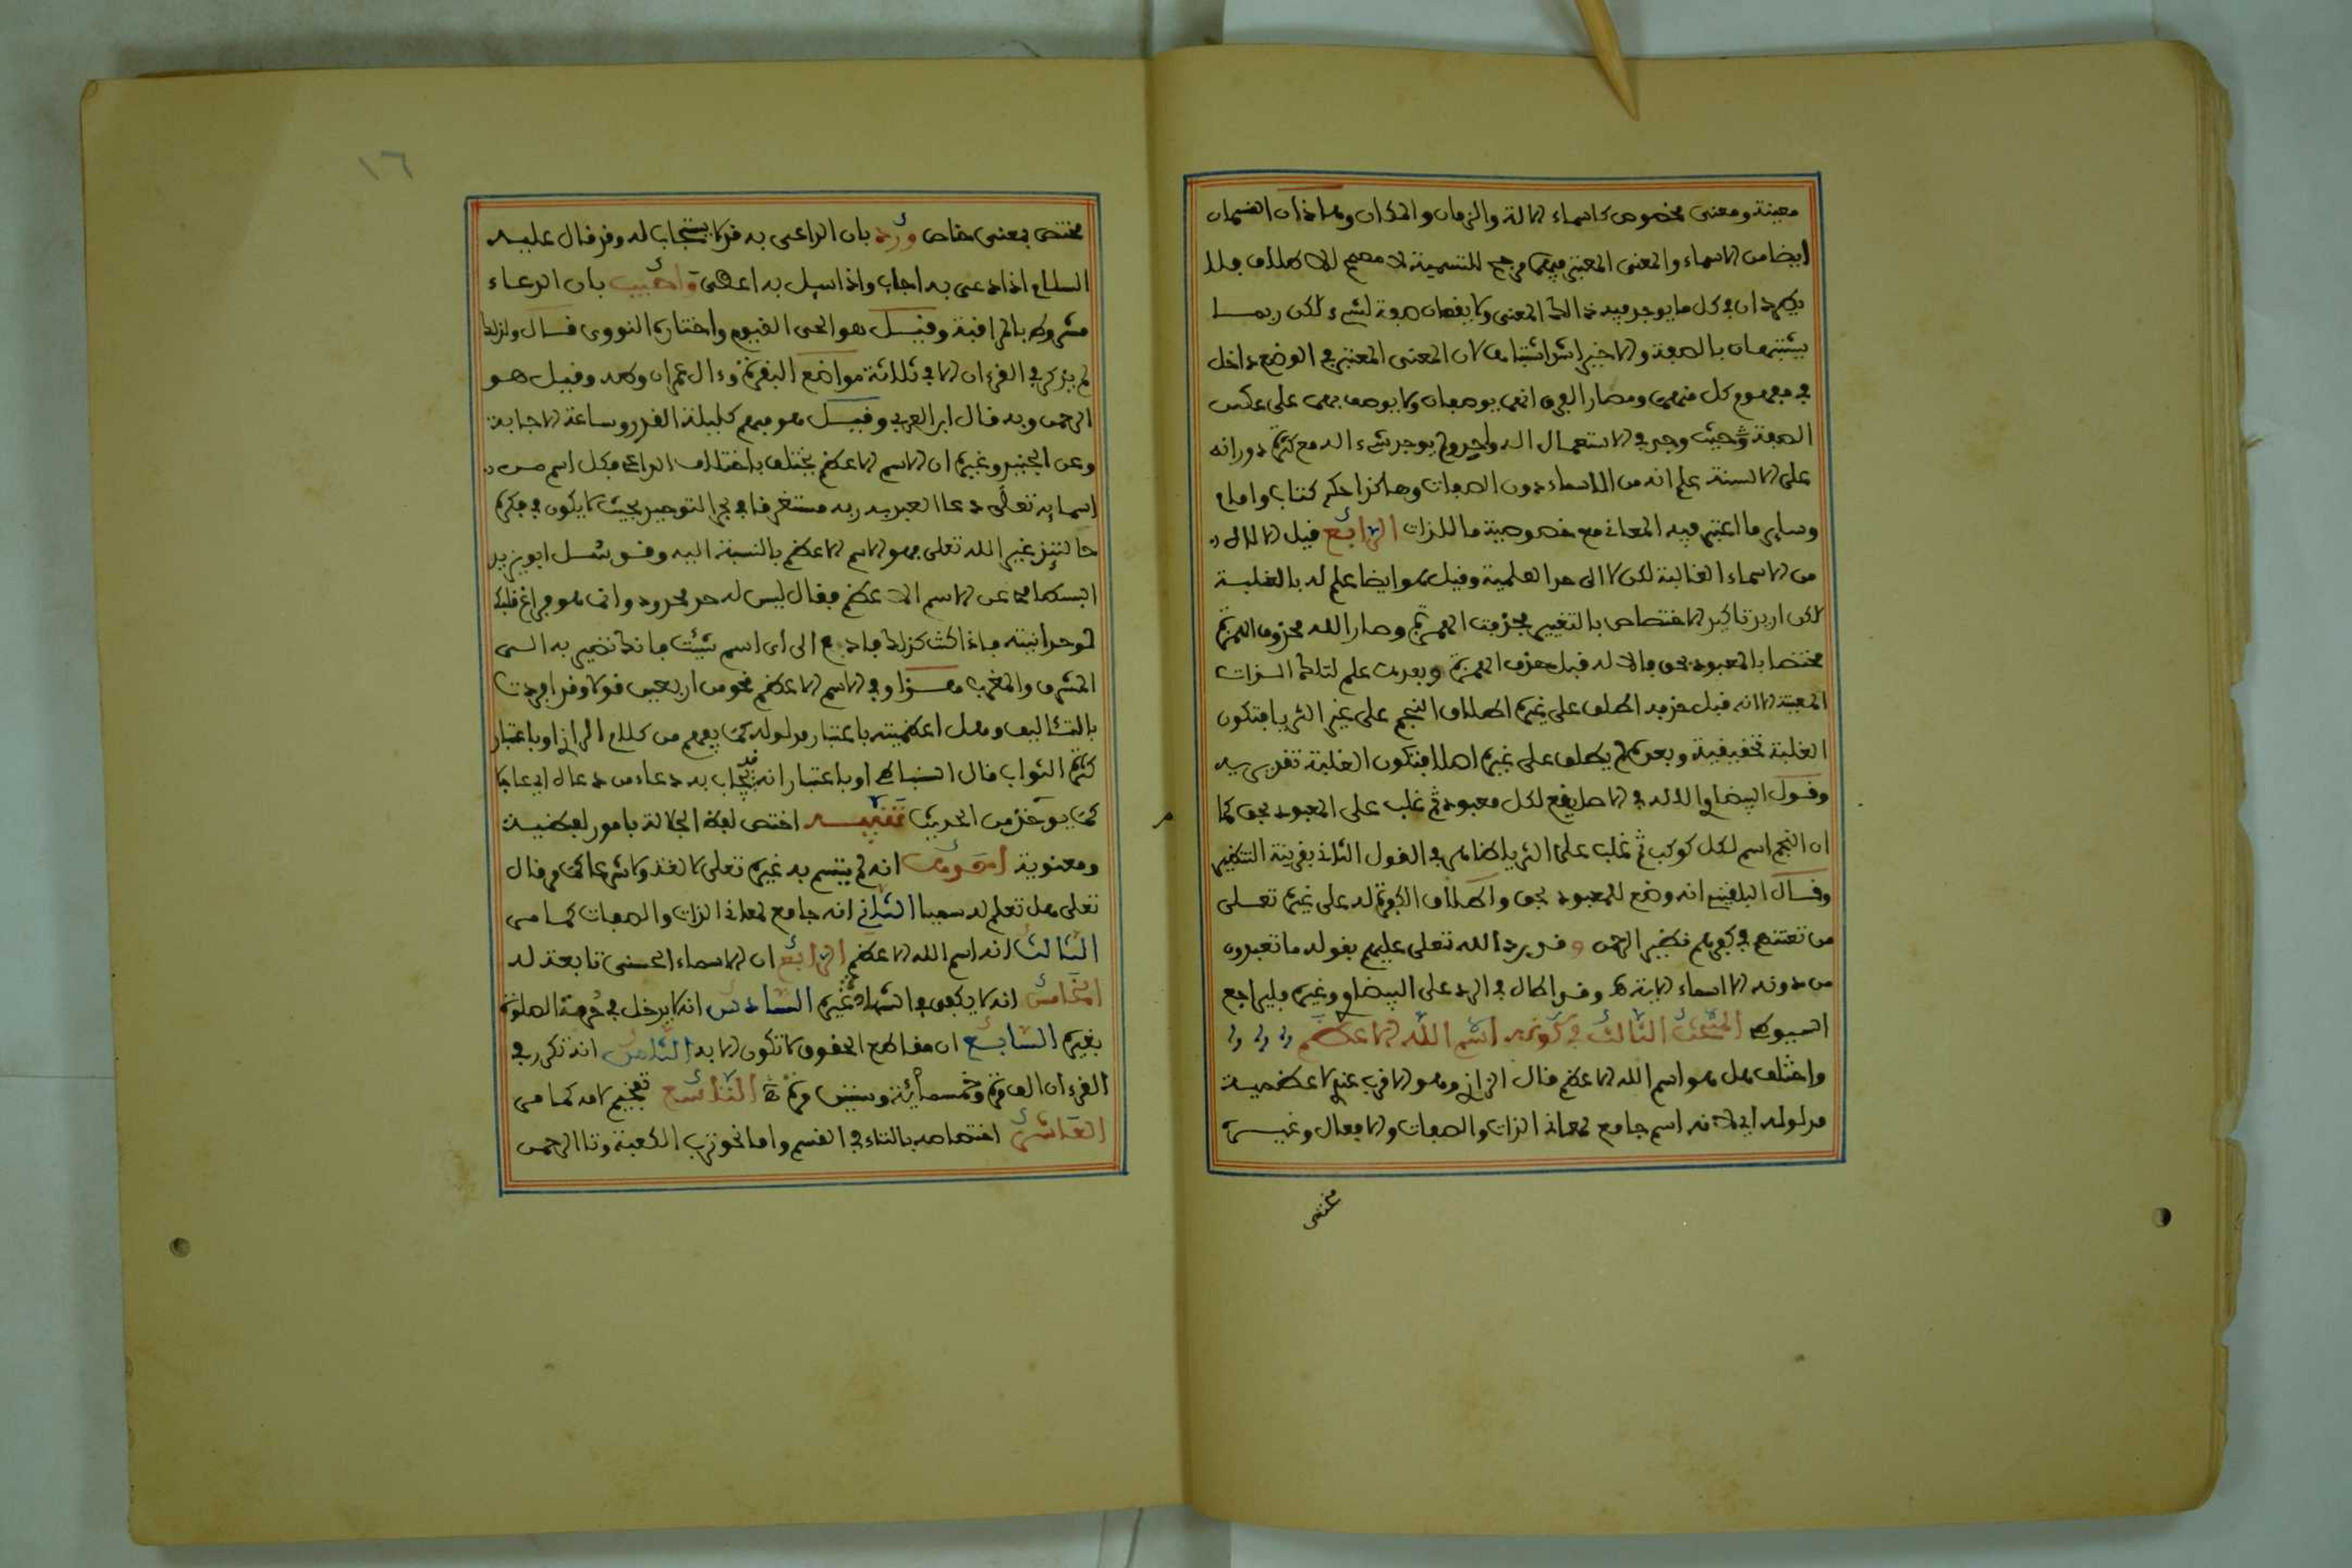 معينة ومعنى مخصوص كاسماء الالة والزمان والمكان وهاذان القسمان
ايضا من الاسماء والمعنى المعتبر فيهما مرجح للتسمية لا مصحح للاطلاق فلا
يطرد ان في كل ما يوجد فيه ذالك المعنى ولا يقعان صفة لشيء لكن ربما
يشتبهان بالصفة والاخير اشد اشتباها لان المعنى المعتبر في الوضع داخل
في مفهوم كل منهما ومصار الفرق انهما يوصفان ولا يوصف بهما على عكس
الصفة وحيث وجد في الاستعمال اله واحد ولم يوجد شيء اله مع كثرة دورانه
على الالسنة علم انه من الاسماء دون الصفات وهاكذا حكم كتاب وامام
وساير ما اعتبر فيه المعانى مع خصوصية ما للذات الرابع قيل الاله
من الاسماء الغالبة لكن لا الى حد العلمية وقيل هو ايضا علم له بالغلبة
لكن اريد تاكيد الاختصاص بالتغيير بحذف الهمزة وصار الله محذوف الهمزة
مختصا بالمعبود بحق فالاله قبل حذف الهمزة وبعده علم لتلك الذات
المعينة الا انه قبل حذفه اطلق على غيره اطلاق النجم على غير الثريا فتكون
الغلبة تحقيقية وبعده لم يطلق على غيره اصلا فتكون الغلبة تقديرية
وقول البيضاوي الاله في الاصل يقع لكل معبود ثم غلب على المعبود بحق كما
ان النجم اسم لكل كوكب ثم غلب على الثريا ظاهر في القول الثانى بقرينة التنظير
وقال البلقيني انه وضع للمعبود بحق واطلاق الكفرة له على غيره تعلى
من تعنتهم في كفرهم نظير الرحمن وقد رد الله تعلى عليهم بقوله ما تعبدون
من دونه الا اسماء الاية وقد اطال في الرد على البيضاوي وغيره فليراجع
السيوطي المبحث الثالث في كونه اسم الله الاعظم
واختلف هل هو اسم الله الاعظم قال الرازي وهو الاقرب عندي لاعظمية
مدلوله اي لانه اسم جامع لمعانى الذات والصفات والافعال وغيره
مختص
١٦
مختص بمعنى خاص ورد بان الداعى به قد لا يستجاب له وقد قال عليه
السلام اذا دعى به اجاب واذا سيل به اعطى واجيب بان الدعاء
مشروط بالمراقبة وقيل هو الحى القيوم واختاره النووى قال ولذلك
لم يذكر في القرءان الا في ثلاثة مواضع البقرة وءال عمران وطه وقيل هو
الرحمن وبه قال ابن العربي وقيل هو مبهم كليلة القدر وساعة الاجابة
وعن الجنيد وغيره ان الاسم الاعظم يختلف باختلاف الداعى فكل اسم من
اسمايه تعالى دعا العبد به ربه مستغرقا في بحر التوحيد بحيث لا يكون في فكره
حالتئذ غير الله تعلى فهو الاسم الاعظم بالنسبة اليه وقد سئل ابو يزيد
البسطامى عن الاسم الاعظم فقال ليس له حد محدود وانما هو فراغ قلبك
لوحدانيته فاذا كنت كذلك فارجع الى اى اسم شيت فانك تصير به الى
المشرق والمغرب هذا وفي الاسم الاعظم نحو من اربعين قولا وقد افردت
بالتئاليف وهل اعظميته باعتبار مدلوله كما يفهم من كلام الرازي او باعتبار
كثرة الثواب قال الشهاب او باعتبار انه قد يجاب به دعاء من دعا له اي عاجلا
كما يوخذ من الحديث تنبيه اختص لفظ الجلالة بامور لفظية
ومعنوية احدها انه لم يتسم به غيره تعلى لا لغة ولا شرعا كما مر قال
تعلى هل تعلم له سميا الثانى انه جامع لمعانى الذات والصفات كما مر
الثالث انه اسم الله الاعظم الرابع ان الاسماء الحسنى تابعة له
الخامس انه لا يكفى في الشهادة غيره السادس انه لا يدخل في حرمة الصلوة
بغيره السابع ان مقاطع الحقوق لا تكون الا به الثامن انه تكرر في
القرءان الف مرة وخمسمائة وستين مرة التاسع تفخيم لامه كما مر
العاشر اختصاصه بالتاء في القسم واما نحو ترب الكعبة وتا الرحمن